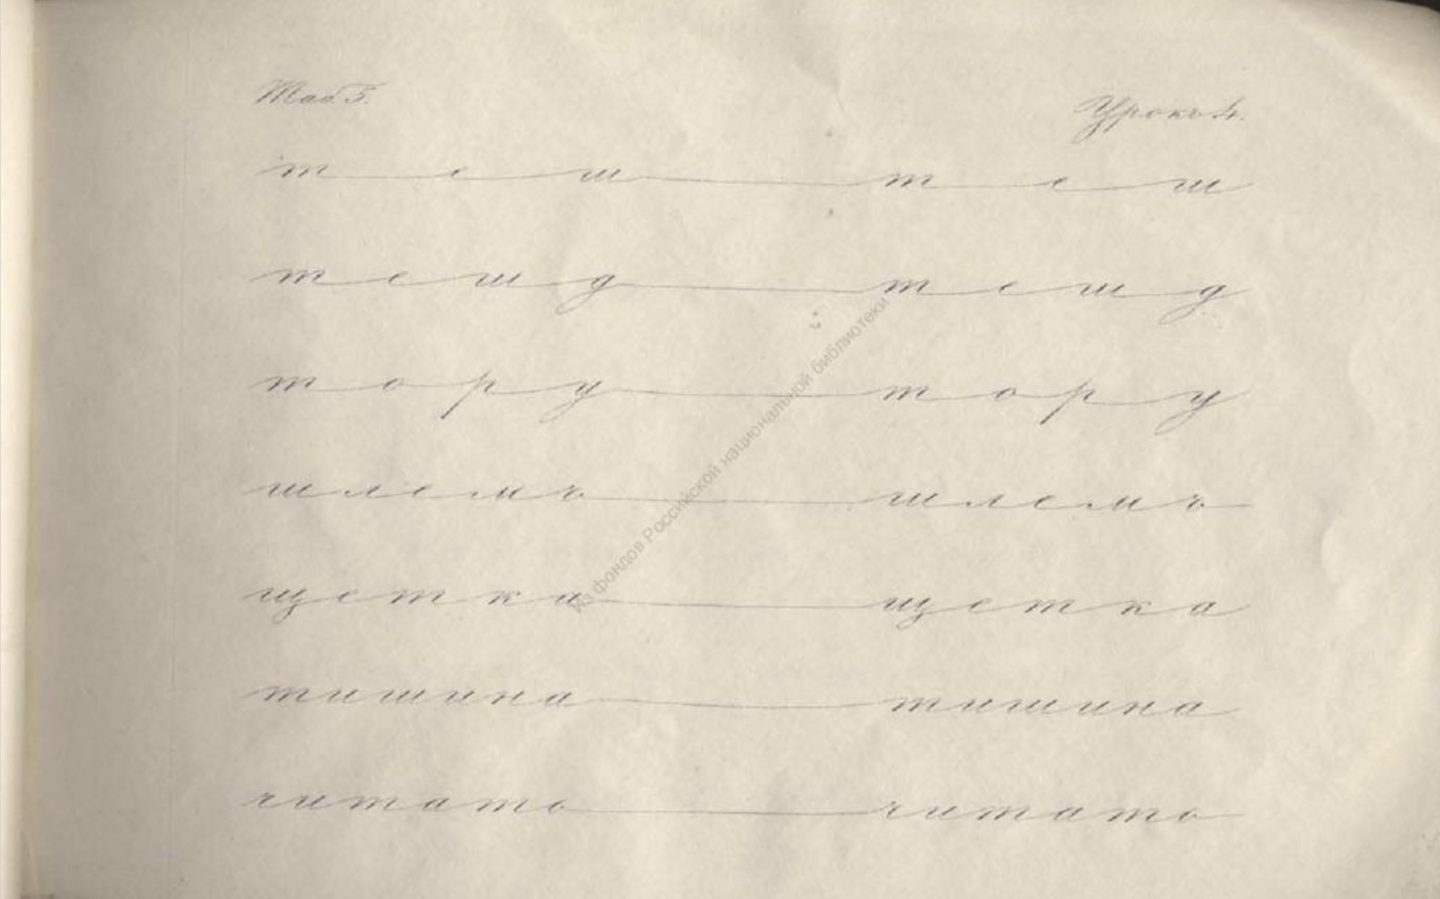 Таб. 5.
Урокъ 4.
т е ш т е ш
т е ш д т е ш д
т о р у т о р у
шлемъ шлемъ
щетка щетка
тишина тишина
читать читать
Из фондов Российской национальной библиотеки